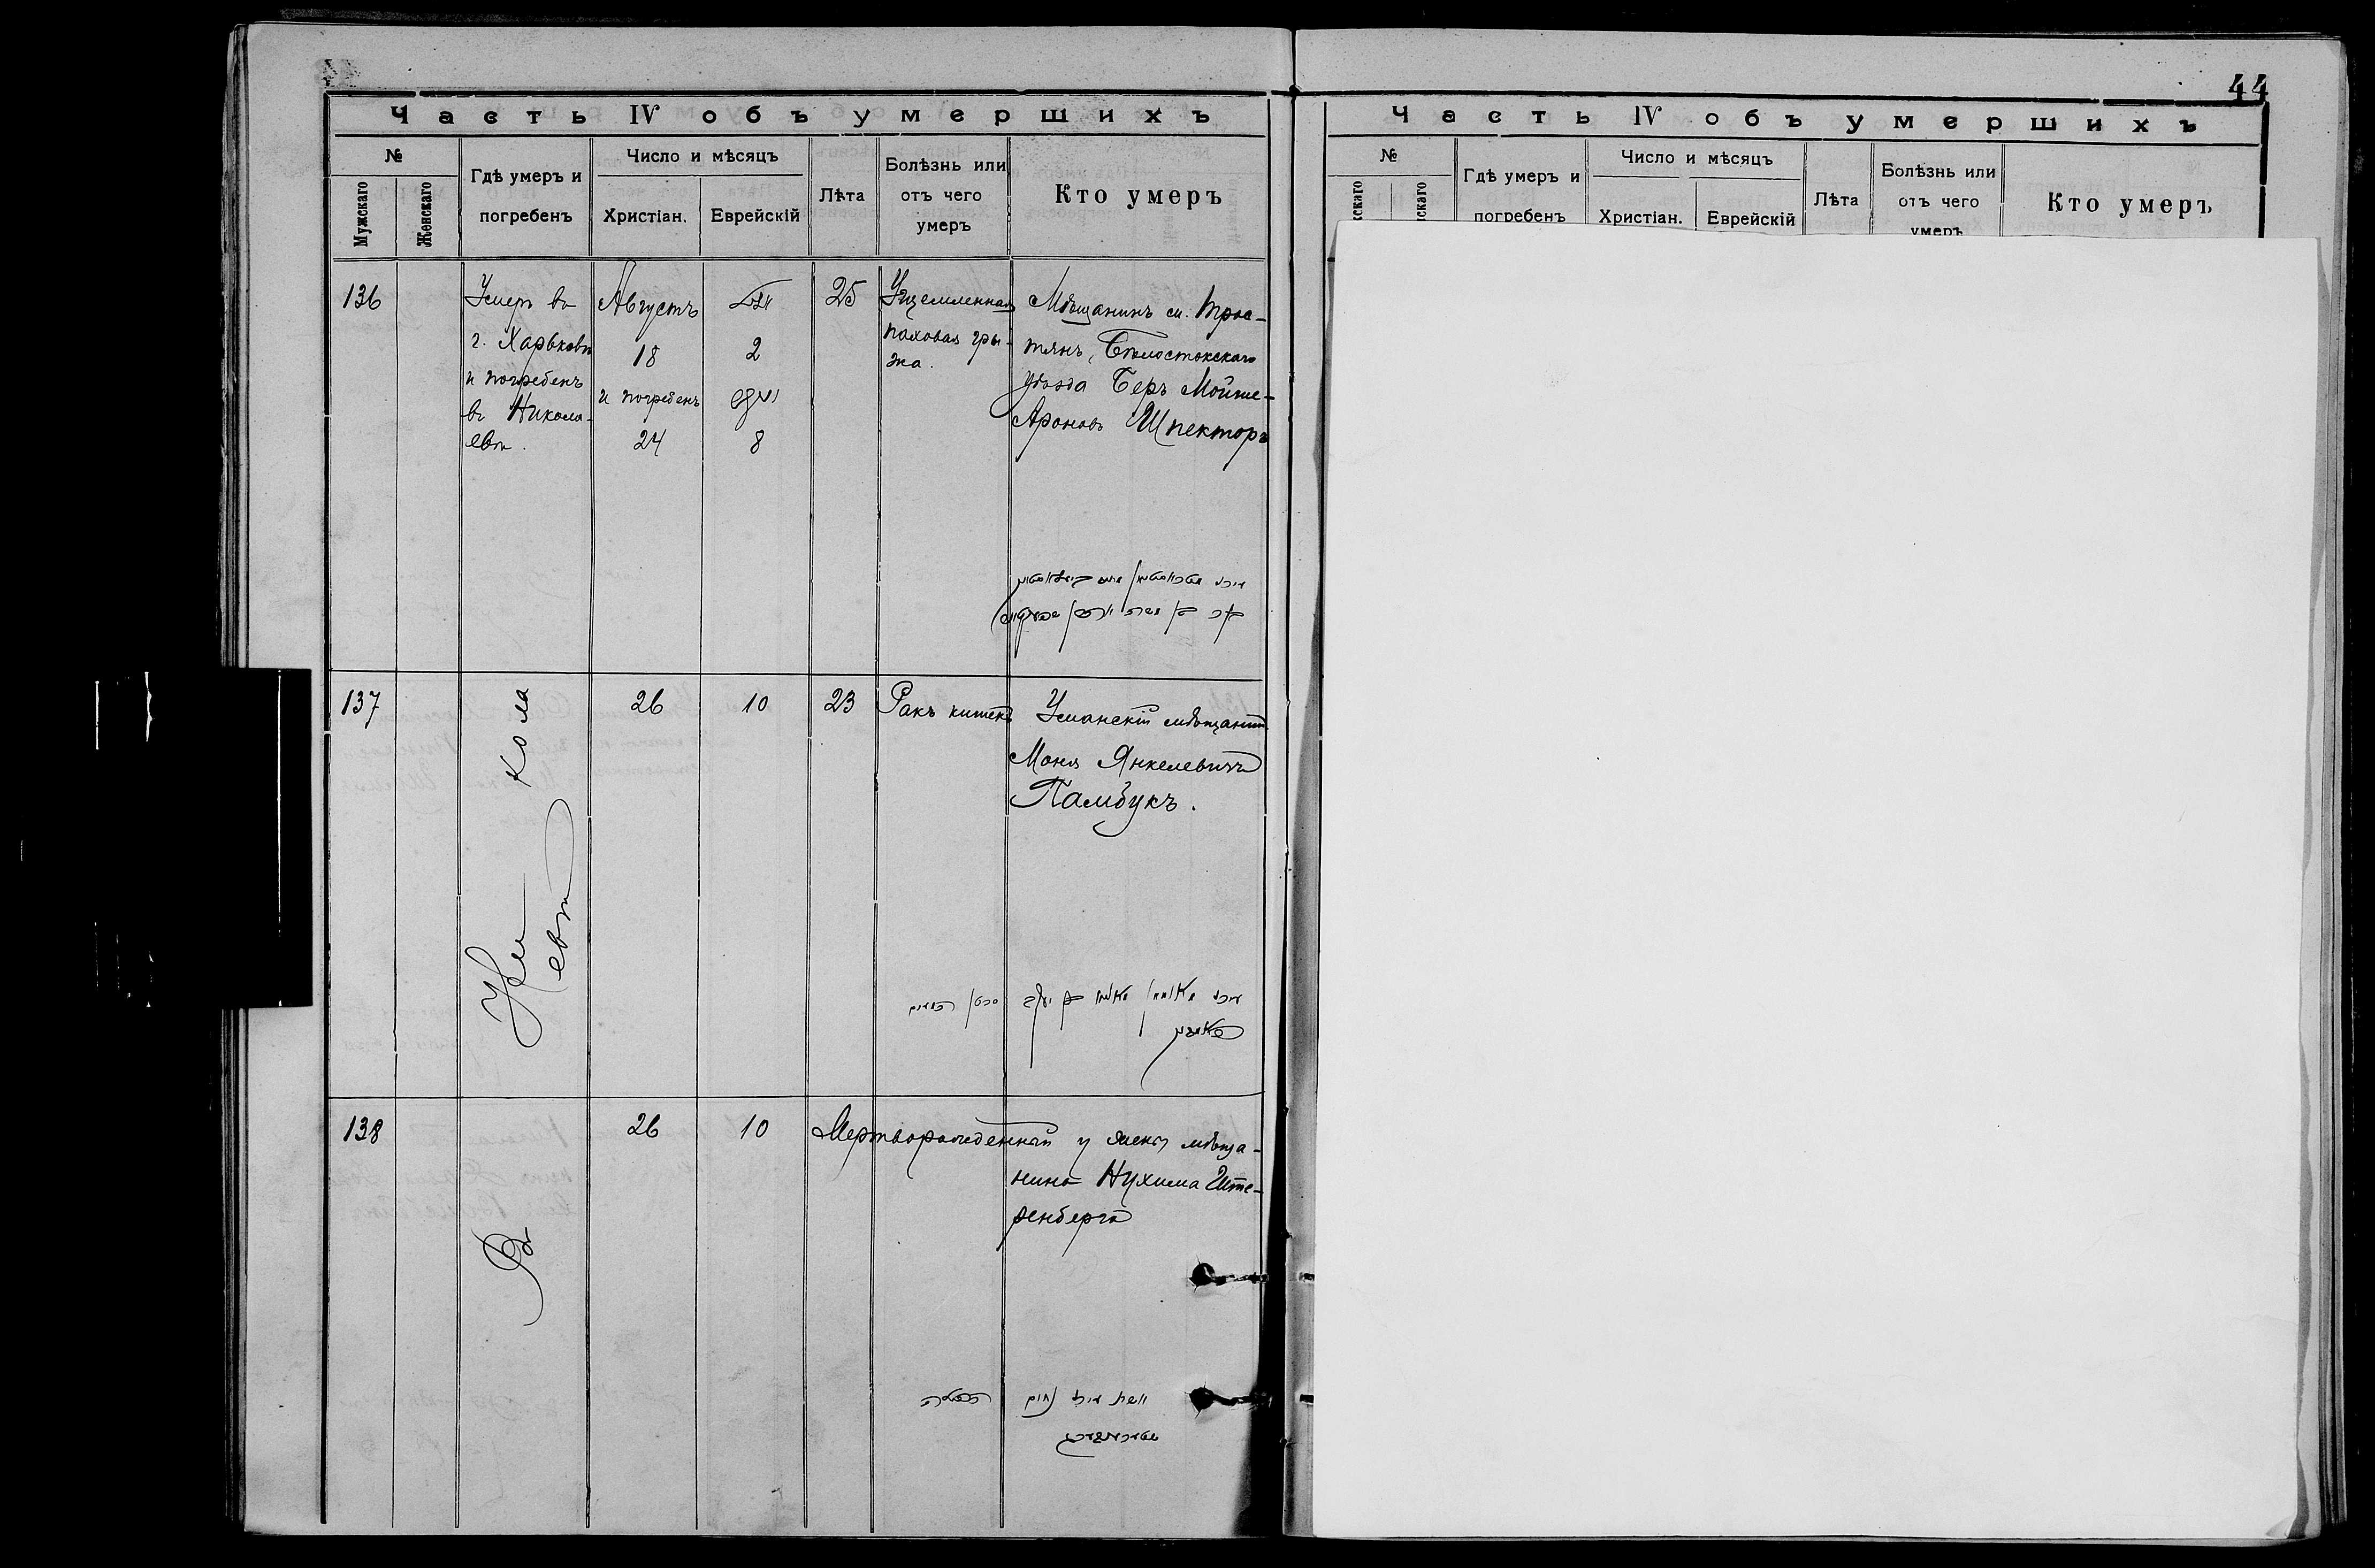 44
Часть IV объ умершихъ
№
Мужскаго
Женскаго
Гдѣ умеръ и
погребенъ
Число и мѣсяцъ
Христіан.
Еврейскій
Лѣта
Болѣзнь или
отъ чего
умеръ
Кто умеръ
136
Умеръ въ
г. Харьковѣ
и погребенъ
въ Никола-
евѣ.
Августъ
18
и погребенъ
24
2
8
25
Ущемленная
паховая гры-
жа.
Мѣщанинъ м. Трос-
тянъ, Бѣлостокскаго
уѣзда Беръ Мойше-
Ароновъ Шпекторъ
137
26
10
23
Ракъ кишекъ
Уманскій мѣщанинъ
Моня Янкелевичъ
Памбукъ.
138
26
10
Мерторожденный у жены мѣща-
нина Нухима Ште-
ренберга
Въ
Нико ла
евѣ
Часть IV объ умершихъ
№
скаго
скаго
Гдѣ умеръ и
погребенъ
Число и мѣсяцъ
Христіан.
Еврейскій
Лѣта
Болѣзнь или
отъ чего
умеръ
Кто умеръ